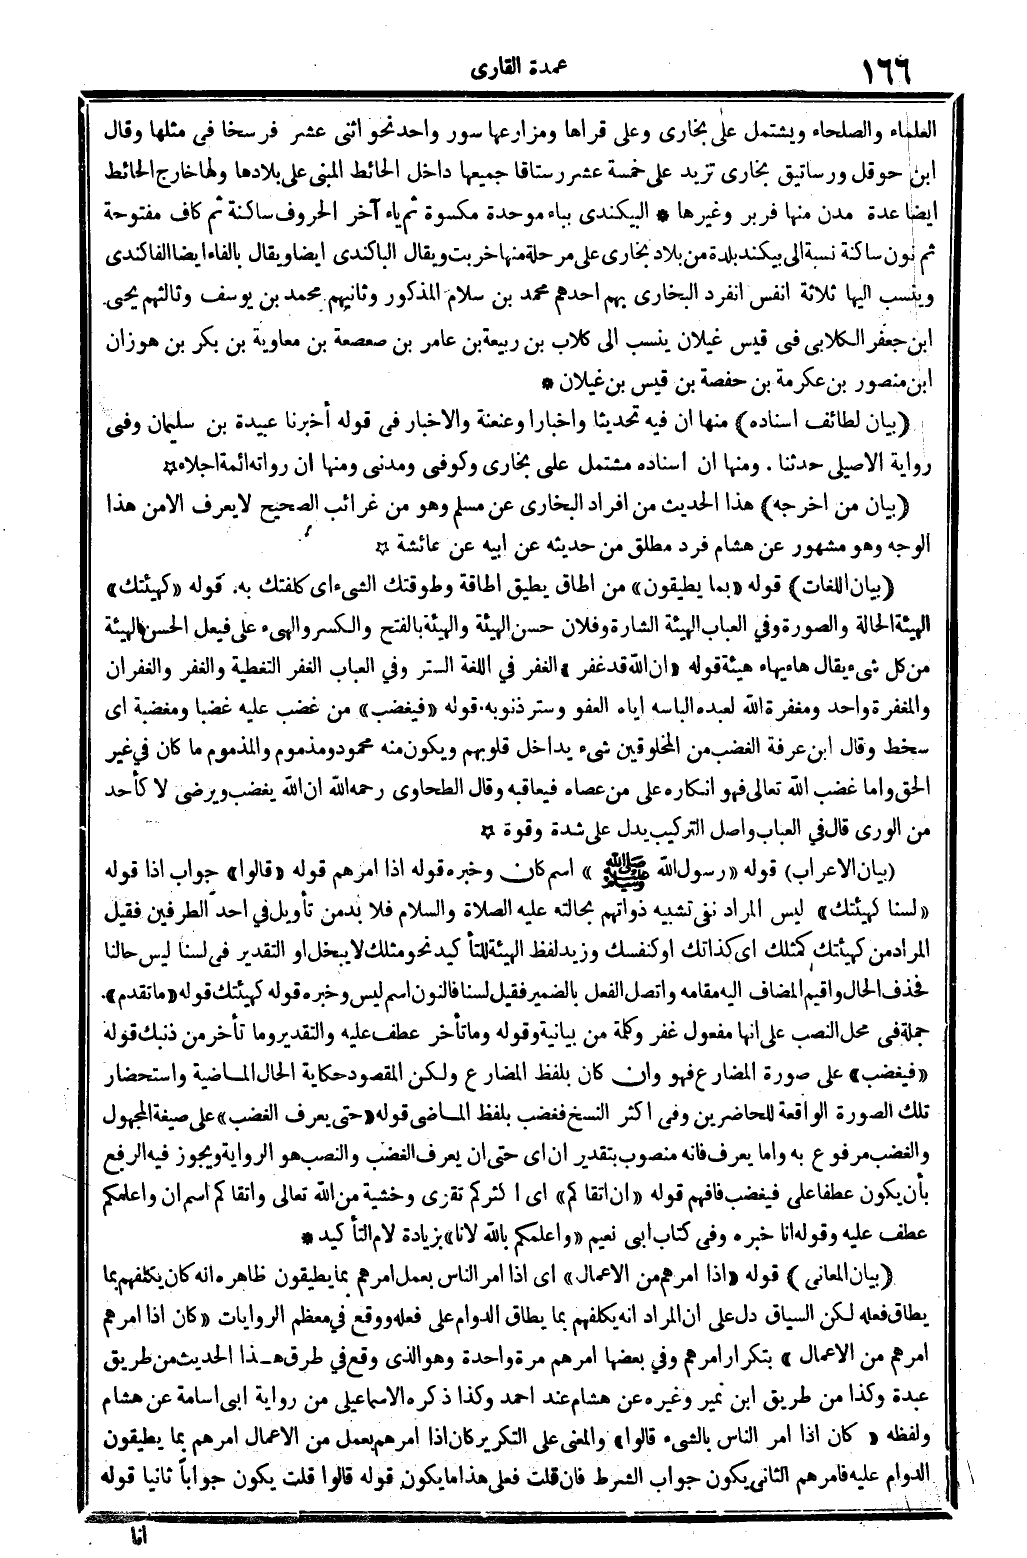 ١٦٦
عمدة القارى
العلماء والصلحاء ويشتمل على بخارى وعلى قراها ومزارعها سور واحد نحو اثنى عشر فرسخا فى مثلها وقال
ابن حوقل ورساتيق بخارى تزيد على خمسة عشر رستاقا جميعها داخل الحائط المبنى على بلادها ولها خارج الحائط
ايضا عدة مدن منها فربر وغيرها * البيكندى بباء موحدة مكسوة ثم ياء آخر الحروف ساكنة ثم كاف مفتوحة
ثم نون ساكنة نسبة الى بيكند بلدة من بلاد بخارى على مرحلة منها خربت ويقال الباكندى ايضا ويقال بالفاء ايضا الفاكندى
وينسب اليها ثلاثة انفس انفرد البخارى بهم احدهم محمد بن سلام المذكور وثانيهم محمد بن يوسف وثالثهم يحيى
ابن جعفر الكلابى فى قيس غيلان ينسب الى كلاب بن ربيعة بن عامر بن صعصعة بن معاوية بن بكر بن هوزان
ابن منصور بن عكرمة بن حفصة بن قيس بن غيلان *
(بيان لطائف اسناده) منها ان فيه تحديثا واخبارا وعنعنة والاخبار فى قوله أخبرنا عبيدة بن سليمان وفى
رواية الاصيلى حدثنا . ومنها ان اسناده مشتمل على بخارى وكوفى ومدنى ومنها ان رواته ائمة اجلاء ☆
(بيان من اخرجه) هذا الحديث من افراد البخارى عن مسلم وهو من غرائب الصحيح لا يعرف الا من هذا
الوجه وهو مشهور عن هشام فرد مطلق من حديثه عن ابيه عن عائشة ☆
(بيان اللغات) قوله «بما يطيقون» من اطاق يطيق اطاقة وطوقتك الشىء اى كلفتك به. قوله «كهيئتك»
الهيئة الحالة والصورة وفي العباب الهيئة الشارة وفلان حسن الهيئة والهيئة بالفتح والكسر والهىء على فيعل الحسن الهيئة
من كل شىء يقال هاء يهاء هيئة قوله «ان الله قد غفر» الغفر في اللغة الستر وفي العباب الغفر التغطية والغفر والغفران
والمغفرة واحد ومغفرة الله لعبده الباسه اياه العفو وستر ذنوبه. قوله «فيغضب» من غضب عليه غضبا ومغضبة اى
سخط وقال ابن عرفة الغضب من المخلوقين شىء يداخل قلوبهم ويكون منه محمود ومذموم والمذموم ما كان في غير
الحق واما غضب الله تعالى فهو انكاره على من عصاه فيعاقبه وقال الطحاوى رحمه الله ان الله يغضب ويرضى لا كأحد
من الورى قال في العباب واصل التركيب يدل على شدة وقوة ☆
(بيان الاعراب) قوله «رسول الله ﷺ» اسم كان وخبره قوله اذا امرهم قوله «قالوا» جواب اذا قوله
«لسنا كهيئتك» ليس المراد نفى تشبيه ذواتهم بحالته عليه الصلاة والسلام فلا بد من تأويل في احد الطرفين فقيل
المراد من كهيئتك كمثلك اى كذاتك او كنفسك وزيد لفظ الهيئة للتأكيد نحو مثلك لا يبخل او التقدير فى لسنا ليس حالنا
فحذف الحال واقيم المضاف اليه مقامه واتصل الفعل بالضمير فقيل لسنا فالنون اسم ليس وخبره قوله كهيئتك قوله «ما تقدم».
جملة فى محل النصب على انها مفعول غفر وكلمة من بيانية وقوله وما تأخر عطف عليه والتقدير وما تأخر من ذنبك قوله
«فيغضب» على صورة المضارع فهو وان كان بلفظ المضارع ولكن المقصود حكاية الحال الماضية واستحضار
تلك الصورة الواقعة للحاضرين وفى اكثر النسخ فغضب بلفظ الماضى قوله «حتى يعرف الغضب» على صيغة المجهول
والغضب مرفوع به واما يعرف فانه منصوب بتقدير ان اى حتى ان يعرف الغضب والنصب هو الرواية ويجوز فيه الرفع
بأن يكون عطفا على فيغضب فافهم قوله «ان اتقاكم» اى اكثركم تقزى وخشية من الله تعالى واتقاكم اسم ان واعلمكم
عطف عليه وقوله انا خبره وفى كتاب ابى نعيم «واعلمكم بالله لانا» بزيادة لام التأكيد *
(بيان المعانى) قوله «اذا امرهم من الاعمال» اى اذا امر الناس بعمل امرهم بما يطيقون ظاهره انه كان يكلفهم بما
يطاق فعله لكن السياق دل على ان المراد انه يكلفهم بما يطاق الدوام على فعله ووقع في معظم الروايات «كان اذا امرهم
امرهم من الاعمال» بتكرار امرهم وفي بعضها امرهم مرة واحدة وهو الذى وقع في طرق هـذا الحديث من طريق
عبدة وكذا من طريق ابن نمير وغيره عن هشام عند احمد وكذا ذكره الاسماعيلى من رواية ابى اسامة عن هشام
ولفظه «كان اذا امر الناس بالشىء قالوا» والمعنى على التكرير كان اذا امرهم بعمل من الاعمال امرهم بما يطيقون
الدوام عليه فامرهم الثانى يكون جواب الشرط فان قلت فعلى هذا ما يكون قوله قالوا قلت يكون جواباً ثانيا قوله
انا